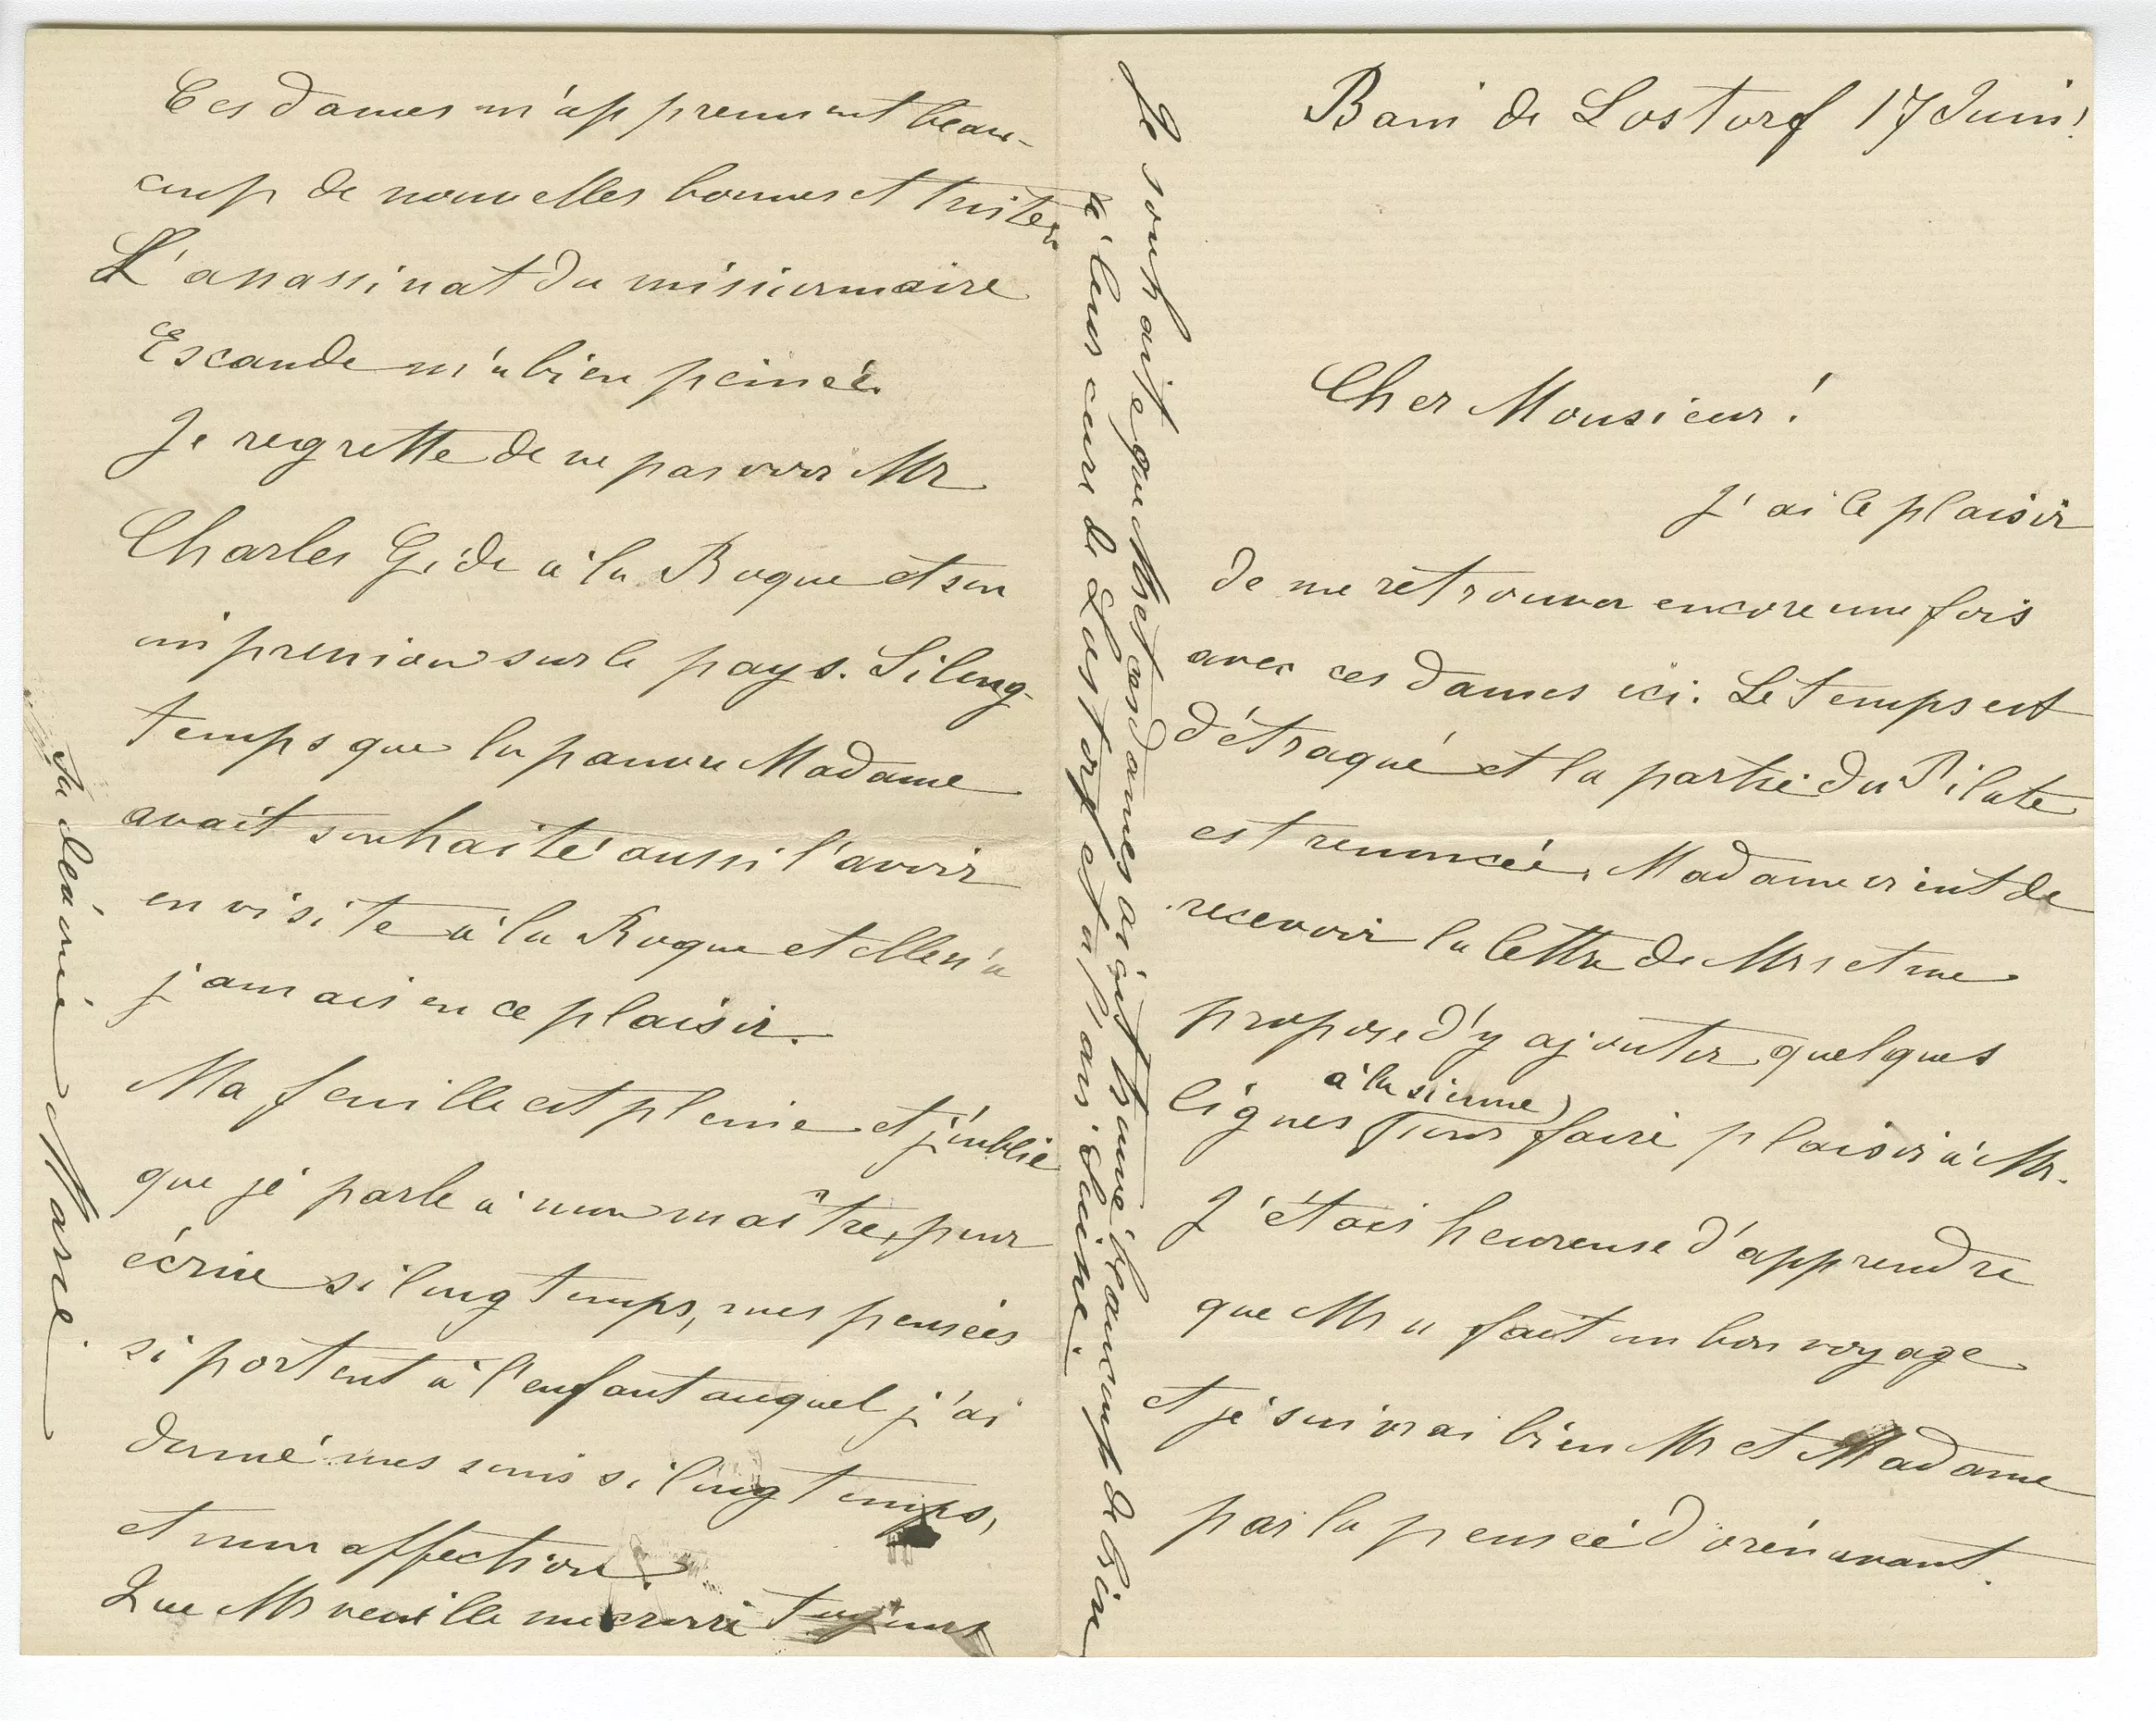 Bain de Lostorf 17 Juin!
Cher Monsieur!
J'ai le plaisir
de me retrouver encore une fois
avec ces dames ici. Le temps est
détraqué et la partie du Pilate
est renoncée. Madame vient de
recevoir la lettre de Mr et me
propose d'y ajouter quelques
à la sienne
lignes pour faire plaisir à Mr.
J'étais heureuse d'apprendre
que Mr a fait un bon voyage
et je suivrai bien Mr et Madame
par la pensée dorénavant.
Ces dames m'apprennent beau-
coup de nouvelles bonnes et tristes.
L'assassinat du missionnaire
Escande m'a bien peinée.
Je regrette de ne pas voir Mr
Charles Gide à la Roque et son
impression sur le pays. Si long-
temps que la pauvre Madame
avait souhaité aussi l'avoir
en visite à la Roque et elle n'a
jamais eu ce plaisir.
Ma feuille est pleine et j'oublie
que je parle à mon maître, pour
écrire si longtemps, mes pensées
si portent à l'enfant auquel j'ai
donné mes soins si longtemps,
et mon affection.
Que Mr veuille me croire toujours
Sa dévouée Marie.
Je souhaite que Mr et ces dames aient trouvé beaucoup de bien
à leur cure de Lostorf et à